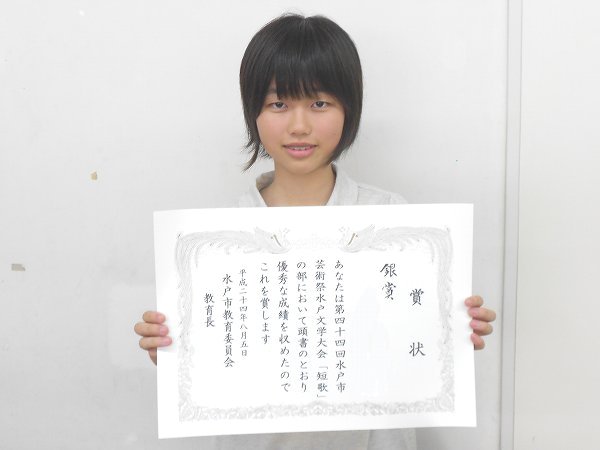 賞状
銀賞
あなたは第四十四回水戸市
芸術祭水戸文学大会「短歌」
の部において頭書のとおり
優秀な成績を収めたので
これを賞します
平成二十四年八月五日
水戸市教育委員会
教育長